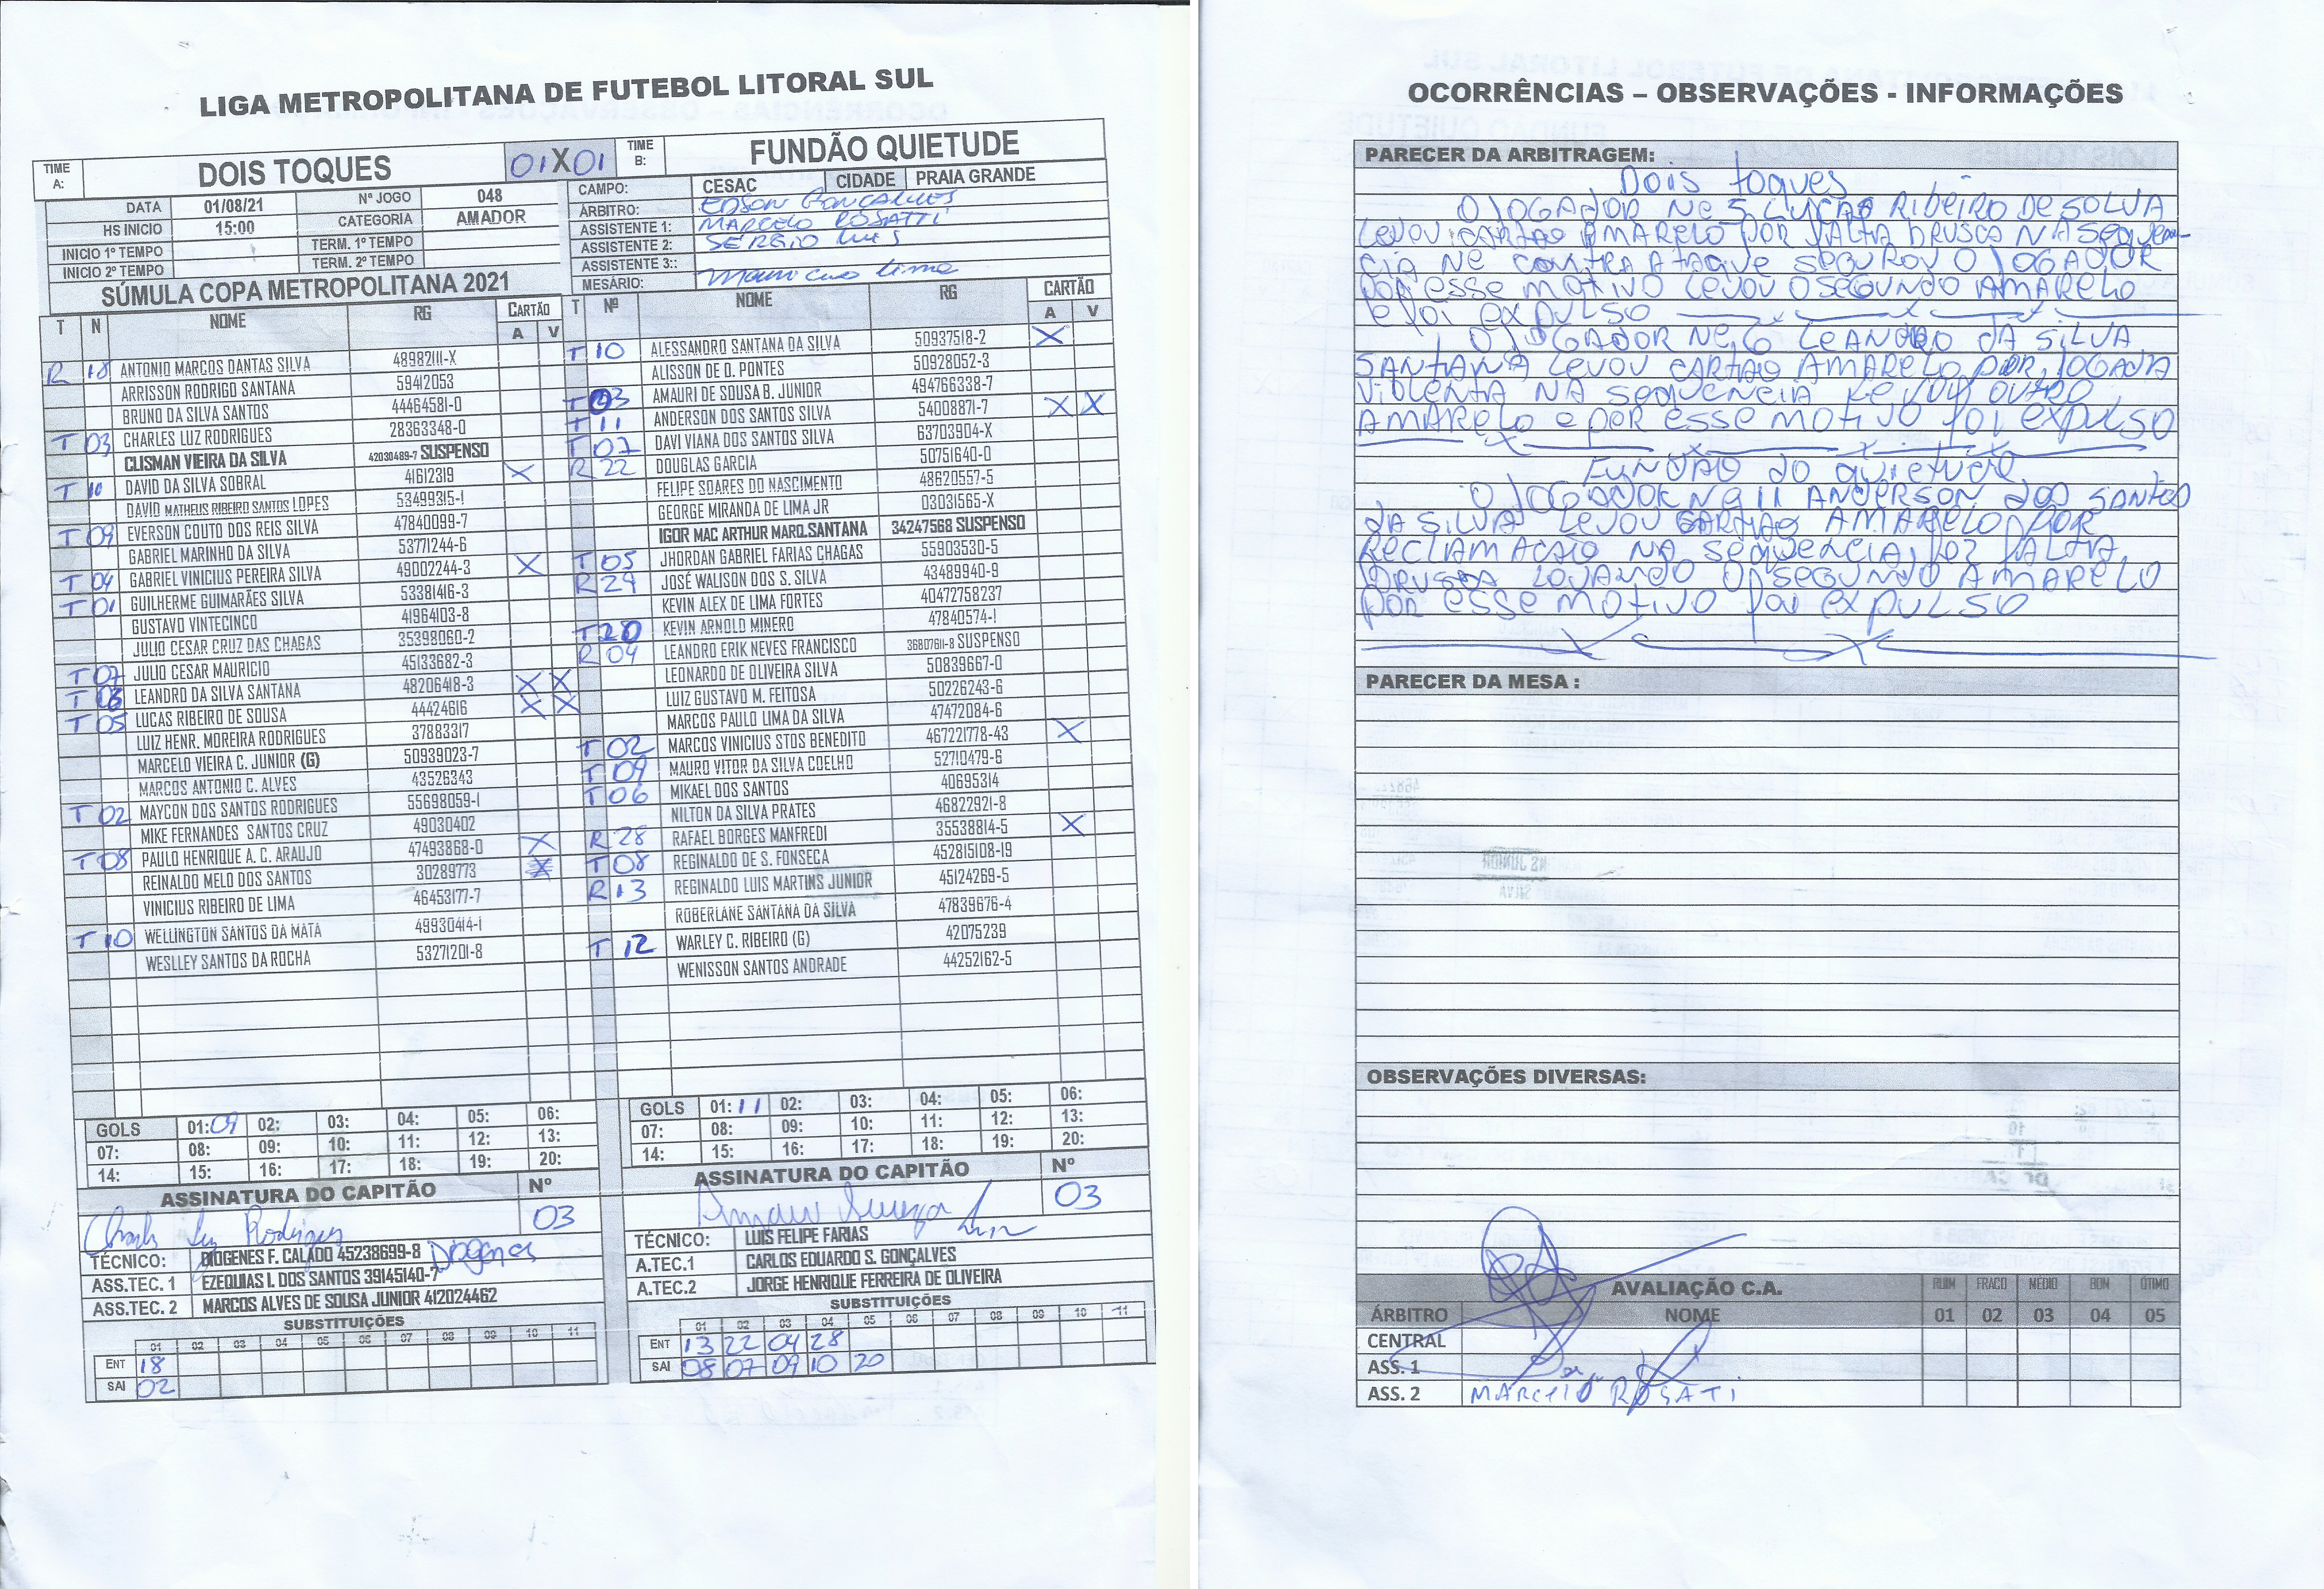 LIGA METROPOLITANA DE FUTEBOL LITORAL SUL
TIME A: DOIS TOQUES 01 X 01 TIME B: FUNDÃO QUIETUDE
DATA 01/08/21 Nº JOGO 048
HS INICIO 15:00 CATEGORIA AMADOR
INICIO 1º TEMPO TERM. 1º TEMPO
INICIO 2º TEMPO TERM. 2º TEMPO
CAMPO: CESAC CIDADE PRAIA GRANDE
ÁRBITRO: EDSON GONCALVES
ASSISTENTE 1: MARCELO ROSATTI
ASSISTENTE 2: SERGIO LUIS
ASSISTENTE 3::
MESÁRIO: Mauricio Lima
SÚMULA COPA METROPOLITANA 2021
T N NOME RG CARTÃO A V
R 18 ANTONIO MARCOS DANTAS SILVA 48982111-X
ARRISSON RODRIGO SANTANA 59412053
BRUNO DA SILVA SANTOS 44464581-0
T 03 CHARLES LUZ RODRIGUES 28363348-0
CLISMAN VIEIRA DA SILVA 42030489-7 SUSPENSO
T 10 DAVID DA SILVA SOBRAL 41612319 X
DAVID MATHEUS RIBEIRO SANTOS LOPES 53499315-1
T 09 EVERSON COUTO DOS REIS SILVA 47840099-7
GABRIEL MARINHO DA SILVA 53771244-6
T 04 GABRIEL VINICIUS PEREIRA SILVA 49002244-3 X
T 01 GUILHERME GUIMARÃES SILVA 53381416-3
GUSTAVO VINTECINCO 41964103-8
JULIO CESAR CRUZ DAS CHAGAS 35398060-2
T 07 JULIO CESAR MAURICIO 45133682-3
T 06 LEANDRO DA SILVA SANTANA 48206418-3 X X
T 05 LUCAS RIBEIRO DE SOUSA 44424616 X X
LUIZ HENR. MOREIRA RODRIGUES 37883317
MARCELO VIEIRA C. JUNIOR (G) 50939023-7
MARCOS ANTONIO C. ALVES 43526343
T 02 MAYCON DOS SANTOS RODRIGUES 55698059-1
MIKE FERNANDES SANTOS CRUZ 49030402
T 08 PAULO HENRIQUE A. C. ARAUJO 47493868-0 X
REINALDO MELO DOS SANTOS 30289773
VINICIUS RIBEIRO DE LIMA 46453177-7
T 10 WELLINGTON SANTOS DA MATA 49930414-1
WESLLEY SANTOS DA ROCHA 53271201-8
T Nº NOME RG CARTÃO A V
T 10 ALESSANDRO SANTANA DA SILVA 50937518-2 X
ALISSON DE O. PONTES 50928052-3
T 03 AMAURI DE SOUSA B. JUNIOR 494766338-7
T 11 ANDERSON DOS SANTOS SILVA 54008871-7 X X
T 07 DAVI VIANA DOS SANTOS SILVA 63703904-X
R 22 DOUGLAS GARCIA 50751640-0
FELIPE SOARES DO NASCIMENTO 48620557-5
GEORGE MIRANDA DE LIMA JR 03031565-X
IGOR MAC ARTHUR MARQ.SANTANA 34247568 SUSPENSO
T 05 JHORDAN GABRIEL FARIAS CHAGAS 55903530-5
R 29 JOSÉ WALISON DOS S. SILVA 43489940-9
KEVIN ALEX DE LIMA FORTES 40472758237
T 20 KEVIN ARNOLD MINERO 47840574-1
R 04 LEANDRO ERIK NEVES FRANCISCO 36807611-8 SUSPENSO
LEONARDO DE OLIVEIRA SILVA 50839667-0
LUIZ GUSTAVO M. FEITOSA 50226243-6
MARCOS PAULO LIMA DA SILVA 47472084-6
T 02 MARCOS VINICIUS STOS BENEDITO 467221778-43 X
T 09 MAURO VITOR DA SILVA COELHO 52710479-6
T 06 MIKAEL DOS SANTOS 40695314
NILTON DA SILVA PRATES 46822921-8
R 28 RAFAEL BORGES MANFREDI 35538814-5 X
T 08 REGINALDO DE S. FONSECA 452815108-19
R 13 REGINALDO LUIS MARTINS JUNIOR 45124269-5
ROBERLANE SANTANA DA SILVA 47839676-4
T 12 WARLEY C. RIBEIRO (G) 42075239
WENISSON SANTOS ANDRADE 44252162-5
GOLS 01: 09 02: 03: 04: 05: 06:
07: 08: 09: 10: 11: 12: 13:
14: 15: 16: 17: 18: 19: 20:
ASSINATURA DO CAPITÃO Nº
Charles Luz Rodrigues 03
TÉCNICO: DIOGENES F. CALADO 45238699-8 Diogenes
ASS.TEC. 1 EZEQUIAS I. DOS SANTOS 39145140-7
ASS.TEC. 2 MARCOS ALVES DE SOUSA JUNIOR 412024462
SUBSTITUIÇÕES
01 02 03 04 05 06 07 08 09 10 11
ENT 18
SAI 02
GOLS 01: 11 02: 03: 04: 05: 06:
07: 08: 09: 10: 11: 12: 13:
14: 15: 16: 17: 18: 19: 20:
ASSINATURA DO CAPITÃO Nº
03
TÉCNICO: LUIS FELIPE FARIAS
A.TEC.1 CARLOS EDUARDO S. GONÇALVES
A.TEC.2 JORGE HENRIQUE FERREIRA DE OLIVEIRA
SUBSTITUIÇÕES
01 02 03 04 05 06 07 08 09 10 11
ENT 13 22 04 28
SAI 08 07 09 10 20
OCORRÊNCIAS – OBSERVAÇÕES - INFORMAÇÕES
PARECER DA ARBITRAGEM:
Dois toques
O JOGADOR Nº 5 LUCAS RIBEIRO DE SOLVA
LEVOU CARTÃO AMARELO POR FALTA BRUSCA NA SEQUEN-
CIA NE CONTRA ATAQUE SEGUROU O JOGADOR
POR ESSE MOTIVO LEVOU O SEGUNDO AMARELO
e foi EXPULSO
O JOGADOR Nº 6 LEANDRO DA SILVA
SANTANA LEVOU CARTÃO AMARELO POR JOGADA
VIOLENTA NA SEQUENCIA LEVOU OUTRO
AMARELO e POR ESSE MOTIVO foi EXPULSO
FUNDÃO do quietude
O JOGADOR Nº 11 ANDERSON DOS SANTOS
DA SILVA LEVOU CARTÃO AMARELO POR
RECLAMAÇÃO NA SEQUENCIA fez FALTA
BRUSCA LEVANDO O SEGUNDO AMARELO
POR ESSE MOTIVO foi EXPULSO
PARECER DA MESA :
OBSERVAÇÕES DIVERSAS:
AVALIAÇÃO C.A. RUIM FRACO MÉDIO BON ÓTIMO
ÁRBITRO NOME 01 02 03 04 05
CENTRAL
ASS. 1
ASS. 2 MARCELO ROSATI